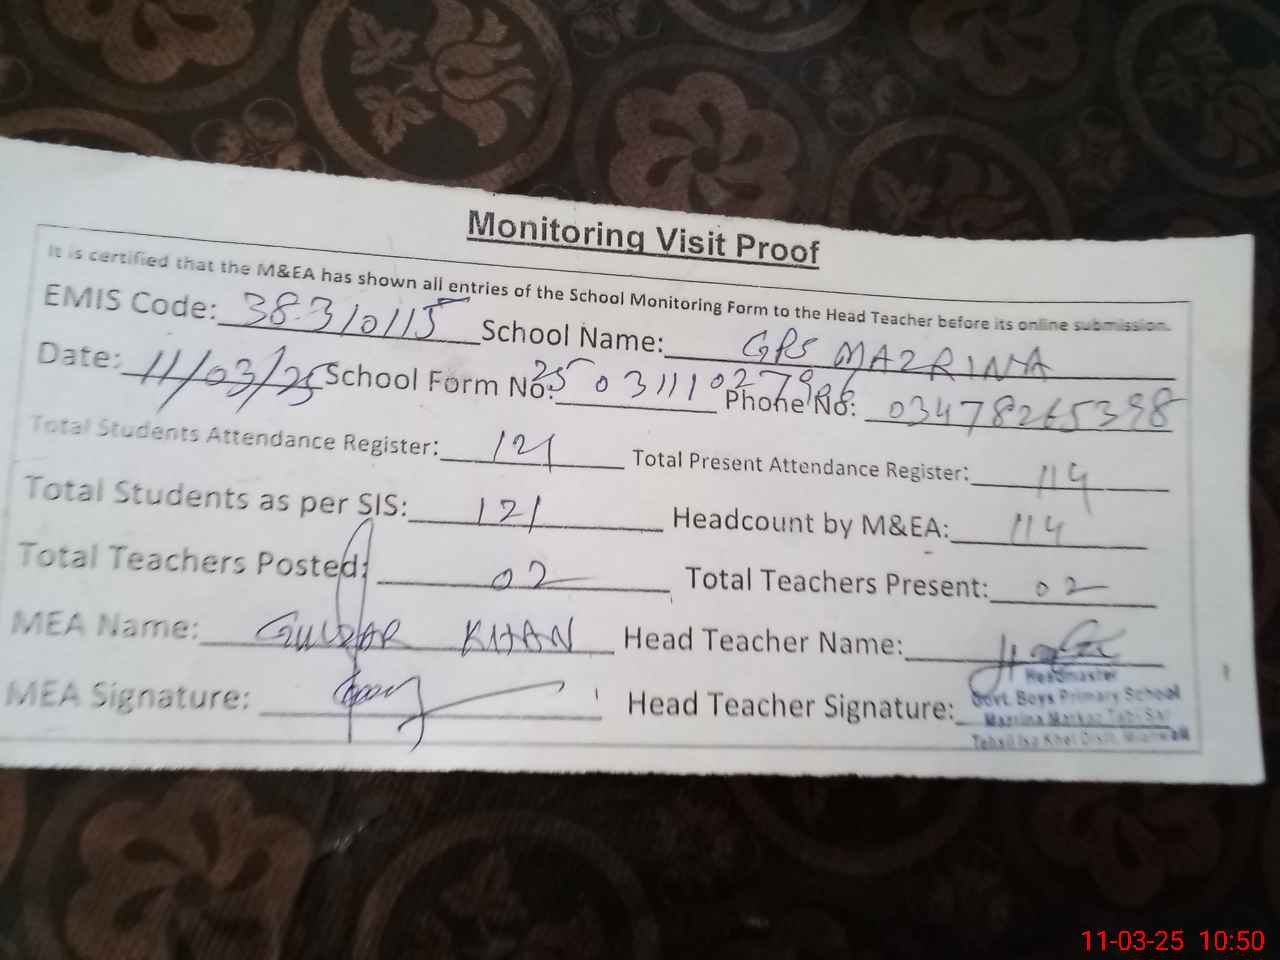 Monitoring Visit Proof
It is certified that the M&EA has shown all entries of the School Monitoring Form to the Head Teacher before its online submission.
EMIS Code: 38310115 School Name: GPS MAZRINA
Date: 11/03/25 School Form No: 25031110279 Phone No: 03478265398
Total Students Attendance Register: 121 Total Present Attendance Register: 114
Total Students as per SIS: 121 Headcount by M&EA: 114
Total Teachers Posted: 02 Total Teachers Present: 02
MEA Name: GULZAR KHAN Head Teacher Name:
MEA Signature: Head Teacher Signature:
Headmaster
Govt. Boys Primary School
Mazrina Markaz Tabi Sar
Tehsil Isa Khel Distt. Mianwali
11-03-25 10:50